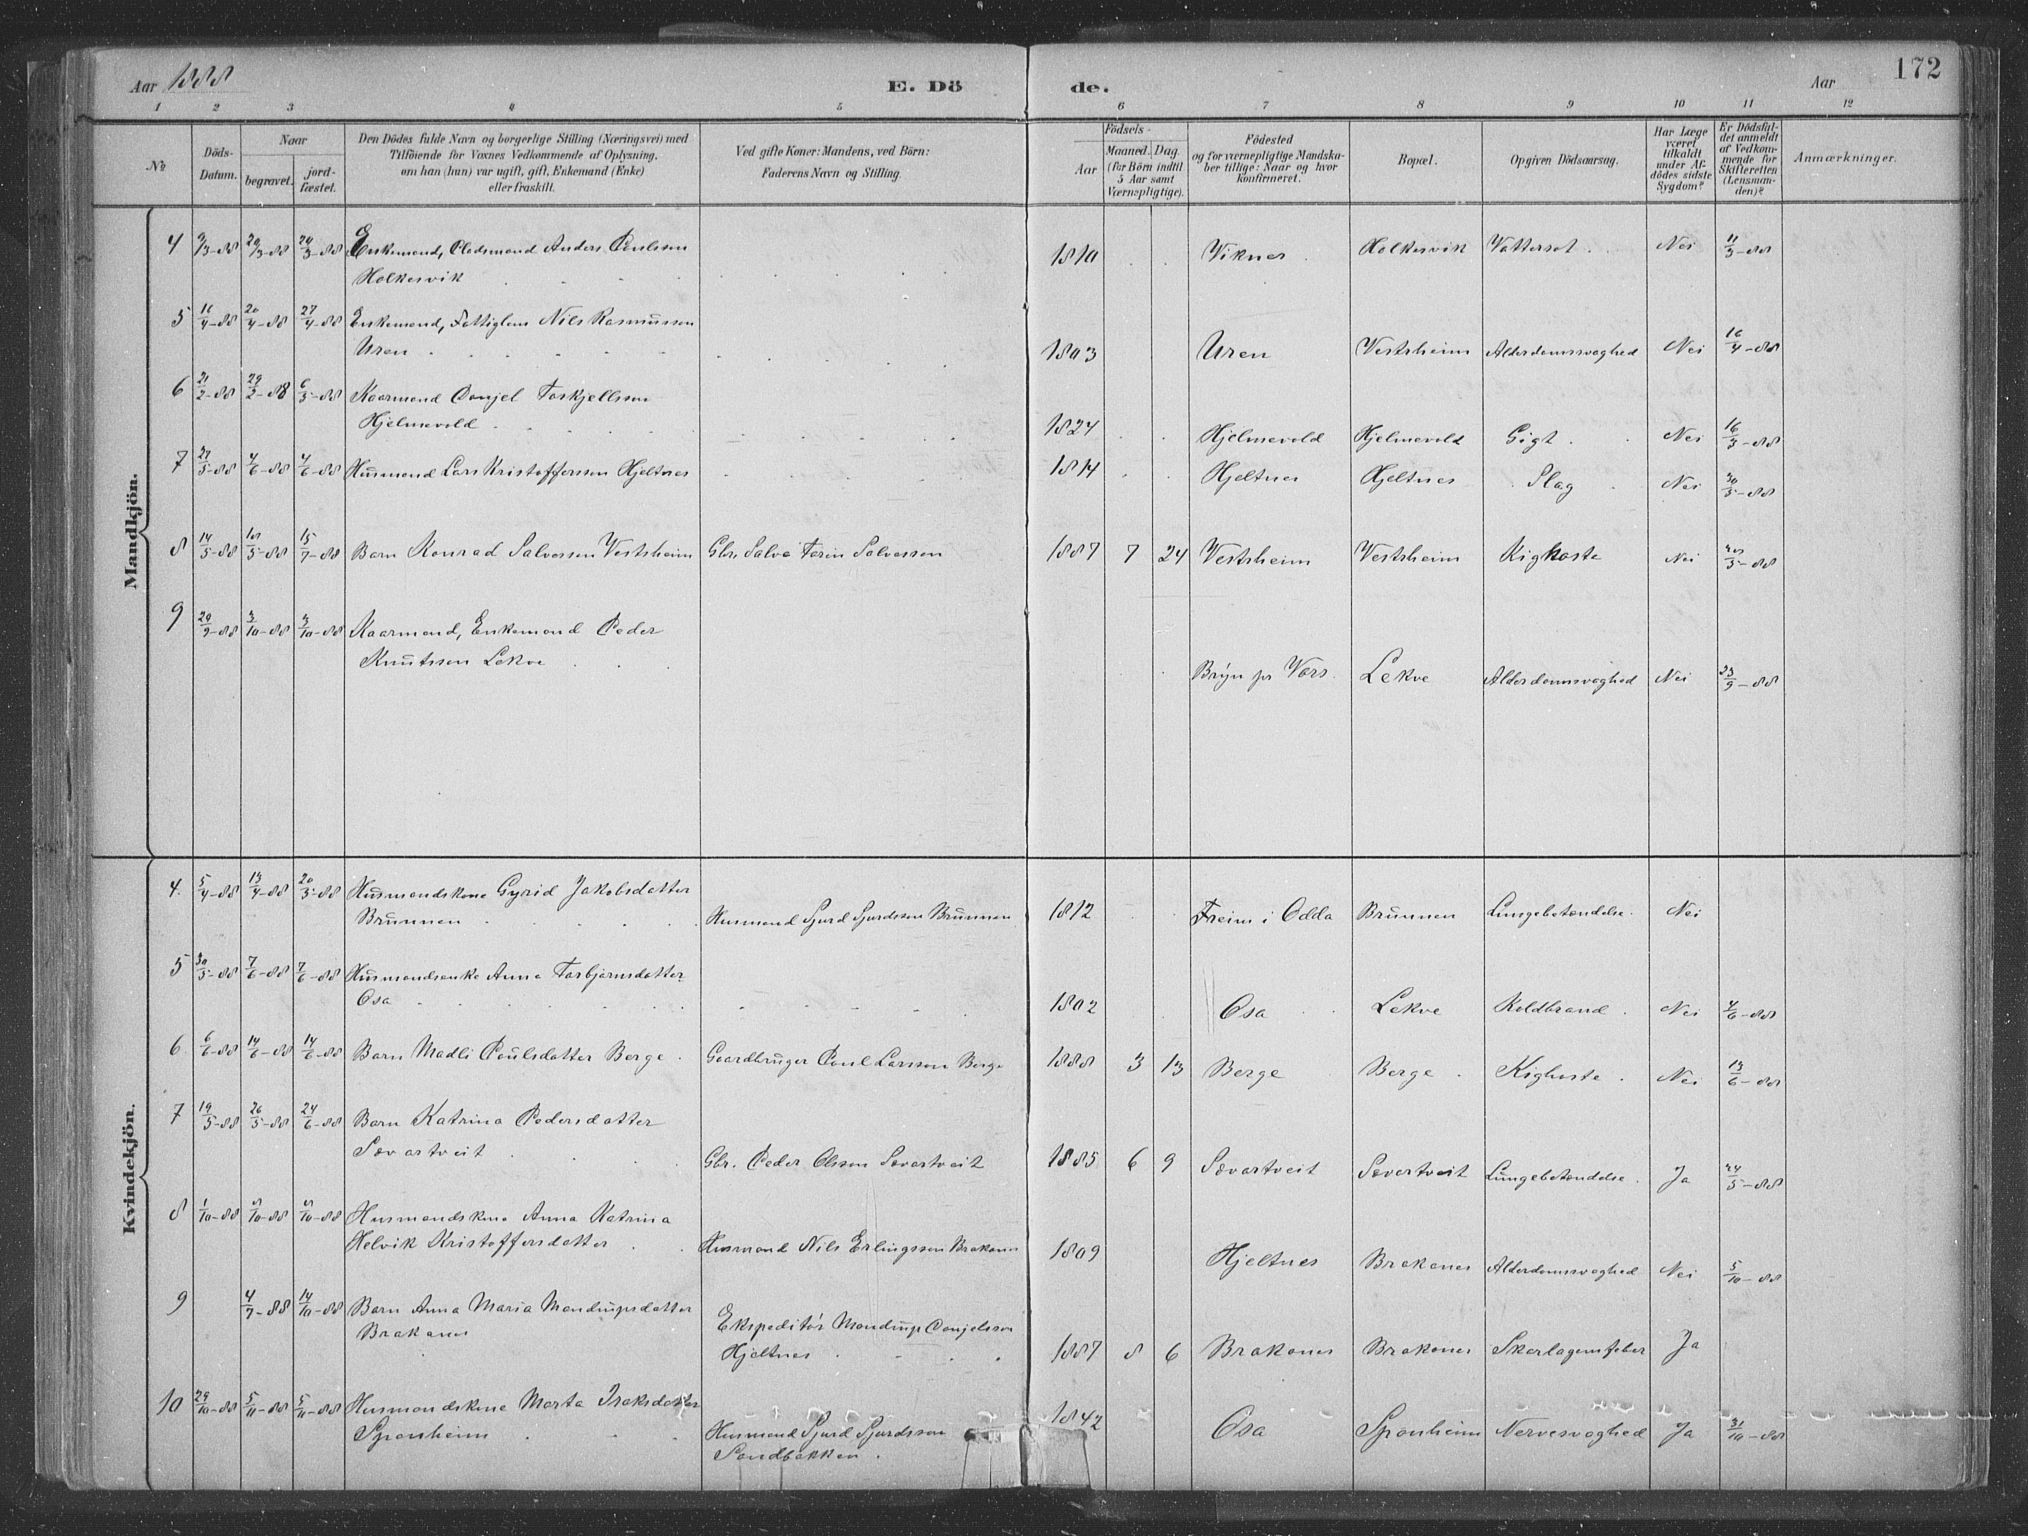 Aar 1888 E. Dö de. Aar 172
1 2 3 4 5 6 7 8 9 10 11 12
No. Döds-Datum. Naar begravet. jord-fæstet. Den Dödes fulde Navn og borgerlige Stilling (Næringsvei) med Tilföiende for Voxnes Vedkommende af Oplysning, om han (hun) var ugift, gift, Enkemand (Enke) eller fraskilt. Ved gifte Koner: Mandens, ved Börn: Faderens Navn og Stilling. Födsels- Aar Maaned. Dag. (for Börn indtil 5 Aar samt Værnepligtige). Födested og for værnepligtige Mandskaber tillige: Naar og hvor konfirmeret. Bopæl. Opgiven Dödsaarsag. Har Læge været tilkaldt under Afdödes sidste Sygdom? Er Dödsfaldet anmeldt af Vedkommende for Skifteretten (Lensmanden)? Anmærkninger.
Mandkjön.
4 9/3-88 29/3-88 29/3-88 Enkemand, Pladsmand Anders Poulsson
Holkesvik 1810 Viknes Holkesvik Vattersot Nei 11/3-88
5 16/4-88 20/4-88 27/4-88 Enkemand, Fattiglem Nils Rasmussen
Uren 1803 Uren Vestrheim Alderdomssvaghed Nei 16/4-88
6 21/2-88 29/2-88 6/3-88 Kaarmand Danjel Torkjellsson
Hjelmevold 1824 Hjelmevold Hjelmevold Gigt Nei 16/3-88
7 27/5-88 4/6-88 4/6-88 Husmand Lars Kristoffersson Hjeltnes 1814 Hjeltnes Hjeltnes Slag Nei 30/5-88
8 14/5-88 18/5-88 15/7-88 Barn Konrad Salvessen Vestrheim Gbr. Salve Salvessen 1887 7 24 Vestrheim Vestrheim Kighoste Nei
9 20/9-88 3/10-88 3/10-88 Kaarmand, Enkemand Peder
Knutsson Lekve Bryn pr Vors. Lekve Alderdomsvaghed Nei 23/9-88
Kvindekjön.
4. 5/4-88 13/4-88 20/5-88 Husmandskone Gyrid Jakobsdatter
Brunnen Husmand Sjurd Sjurdsson Brunnen 1812 Freim i Odda Brunnen Lungebetændelse. Nei
5 30/5-88 7/6-88 7/6-88 Husmandsenke Anna Torbjørnsdatter
Osa 1802 Osa Lekve Koldbrand. Nei 4/6-88
6. 6/6-88 14/6-88 14/6-88 Barn Madli Poulsdatter Berge. Gaardbruger Poul Larsson Berge 1888 3 13 Berge Berge. Kighoste. Nei 13/6-88
7 19/5-88 26/5-88 24/6-88 Barn Katrina Pedersdatter
Sævartveit Gbr. Peder Olsson Sævartveit 1885 6 9 Sævartveit Sævartveit Lungebetændelse. Ja 24/5-88
8 1/10-88 8/10-88 8/10-88 Husmandskone Anna Katrina
Helvik Kristoffersdatter Husmand Nils Erlingsson Brakanes 1809 Hjeltnes Brakanes Alderdomsvaghed Nei 5/10-88
9 4/9-88 14/10-88 Barn Anna Maria Mandrupsdatter
Brakanes Ekspeditør Mandrup Danjelsson
Hjeltnes 1887 8 6 Brakanes Brakanes Skarlagensfeber Ja
10 29/10-88 5/11-88 5/11-88 Husmandskone Marta Isaksdatter
Sponheim Husmand Sjurd Sjurdsson
Sandbakken. 1842 Osa Sponheim Nervesvaghed Ja 31/10-88